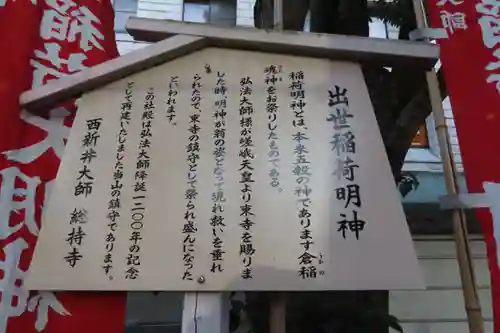 出世稲荷明神
稲荷明神とは、本来五穀の神であります倉稲
魂神をお祭りしたものである。
弘法大師様が嵯峨天皇より東寺を賜りま
した時、明神が翁の姿となって現れ救いを垂れ
られたので、東寺の鎮守として祭られ盛んになった
といわれます。
この社殿は弘法大師降誕一二〇〇年の記念
として再建いたしました当山の鎮守であります。
西新井大師　総持寺
稲荷大明神